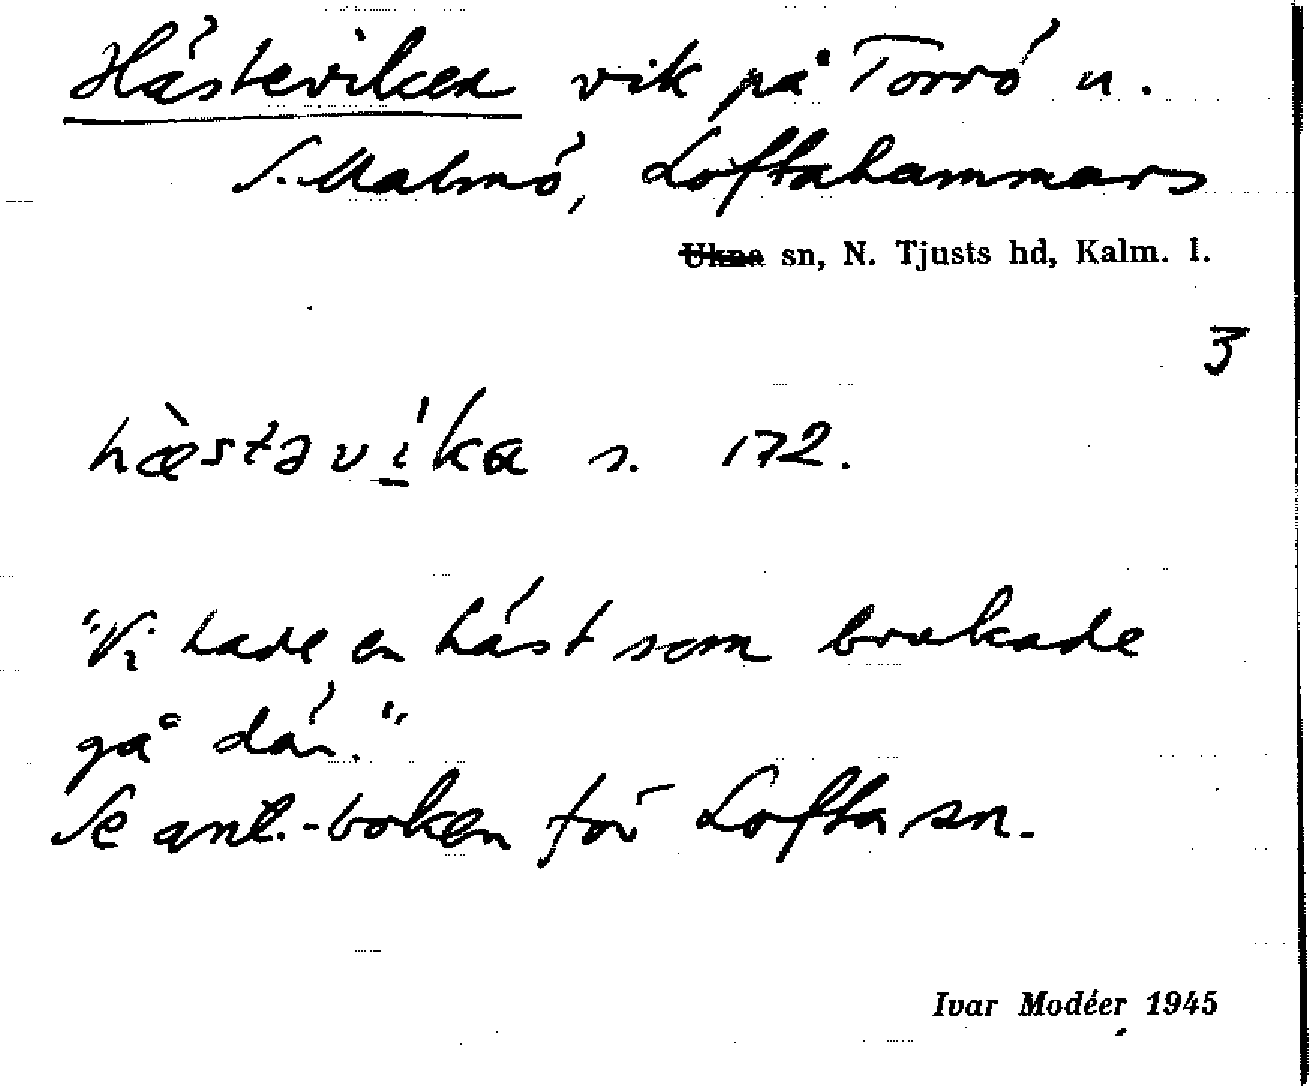 Hästeviken vik på Torrö u.
S. Malmö, Loftahammars
Ukna sn, N. Tjusts hd, Kalm. l.
3
hæ̀stəvíka s. 172.
"Vi hade en häst som brukade
gå där."
Se ant.-boken för Lofta sn.
Ivar Modéer 1945